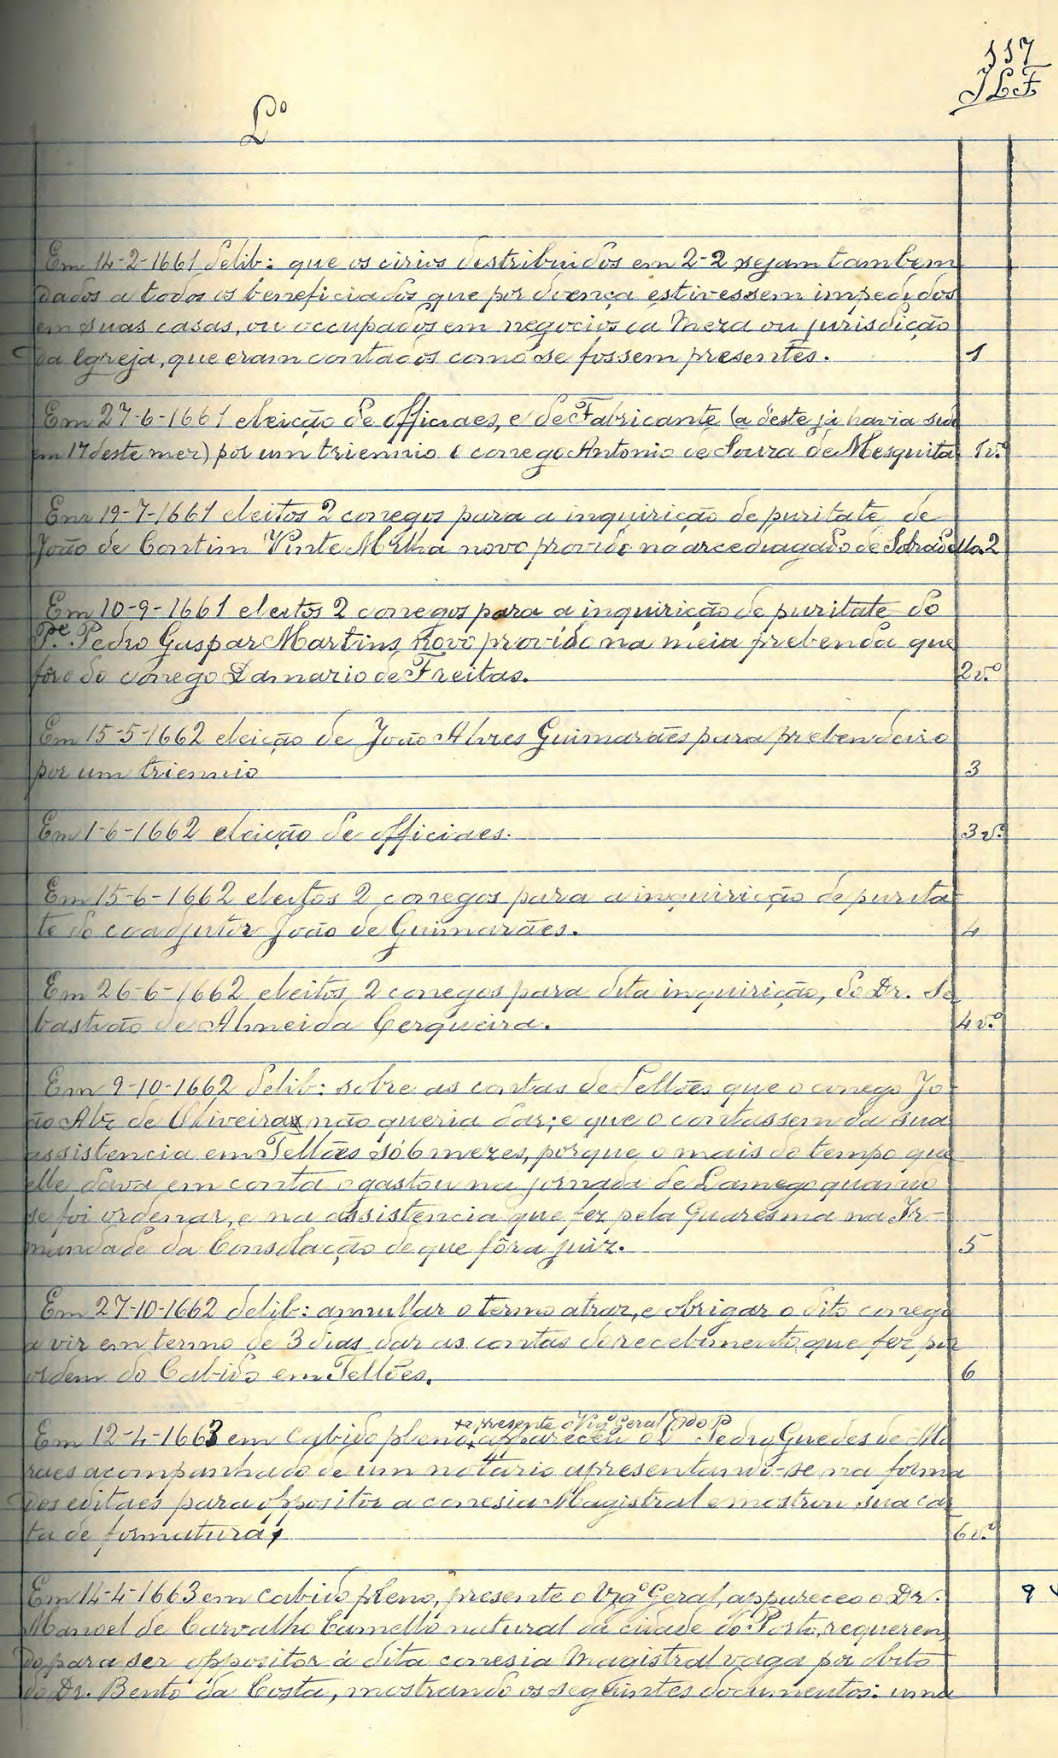 117
L.º
Em 14-2-1661 delib: que os cirios destribuidos em 2-2 sejam tambem
dados a todos os beneficiados que por doença estivessem impedidos
em suas casas, ou occupados em negocios da Meza ou jurisdição
da Egreja, que eram contados como se fossem presentes. 1
Em 27-6-1661 eleição de officiaes, e de Fabricante (a deste já havia sido
em 17 deste mez) por um triennio o conego Antonio de Souza de Mesquita 1v.º
Em 19-7-1661 eleitos 2 conegos para a inquirição de puritate de
João de Contim Vinte Milha novo provido no arcediagado de Sobradello. 2
Em 10-9-1661 eleitos 2 conegos para a inquirição de puritate do
P.e Pedro Gaspar Martins, novo provido na meia prebenda que
fôra do conego Damazio de Freitas. 2v.º
Em 15-5-1662 eleição de João Alvres Guimarães para prebendeiro
por um triennio 3
Em 1-6-1662 eleição de officiaes. 3v.º
Em 15-6-1662 eleitos 2 conegos para a inquirição de purita-
te do coadjutor João de Guimarães. 4
Em 26-6-1662 eleitos 2 conegos para dita inquirição, do Dr. Se-
bastião de Almeida Cerqueira. 4v.º
Em 9-10-1662 delib: sobre as contas de Tellões que o conego Jo-
ão Alz de Oliveira não queria dar; e que o contassem da sua
assistencia em Tellões só 6 mezes, porque o mais do tempo que
elle dava em conta o gastou na jornada de Lamego quando
se foi ordenar, e na assistencia que fez pela Quaresma na Ir-
mandade da Consolação de que fôra juiz. 5
Em 27-10-1662 delib: annullar o termo atraz, e obrigar o dito conego
a vir em termo de 3 dias dar as contas do recebimento que fez por
ordem do Cabido em Tellões. 6
presente o Vig.º Geral
Em 12-4-1663 em cabido pleno, appareceu o Pedro Guedes de Mo-
raes acompanhado de um notario apresentando-se na forma
dos editaes para oppositor a conesia Magistral e mostrou sua car-
ta de formatura; 6v.º
Em 14-4-1663 em cabido pleno, presente o Vgº Geral, appareceo o Dr.
Manoel de Carvalho Camello natural da cidade do Porto, requeren-
do para ser oppositor á dita conesia Magistral vaga por obito
do Dr. Bento da Costa, mostrando os seguintes documentos: uma